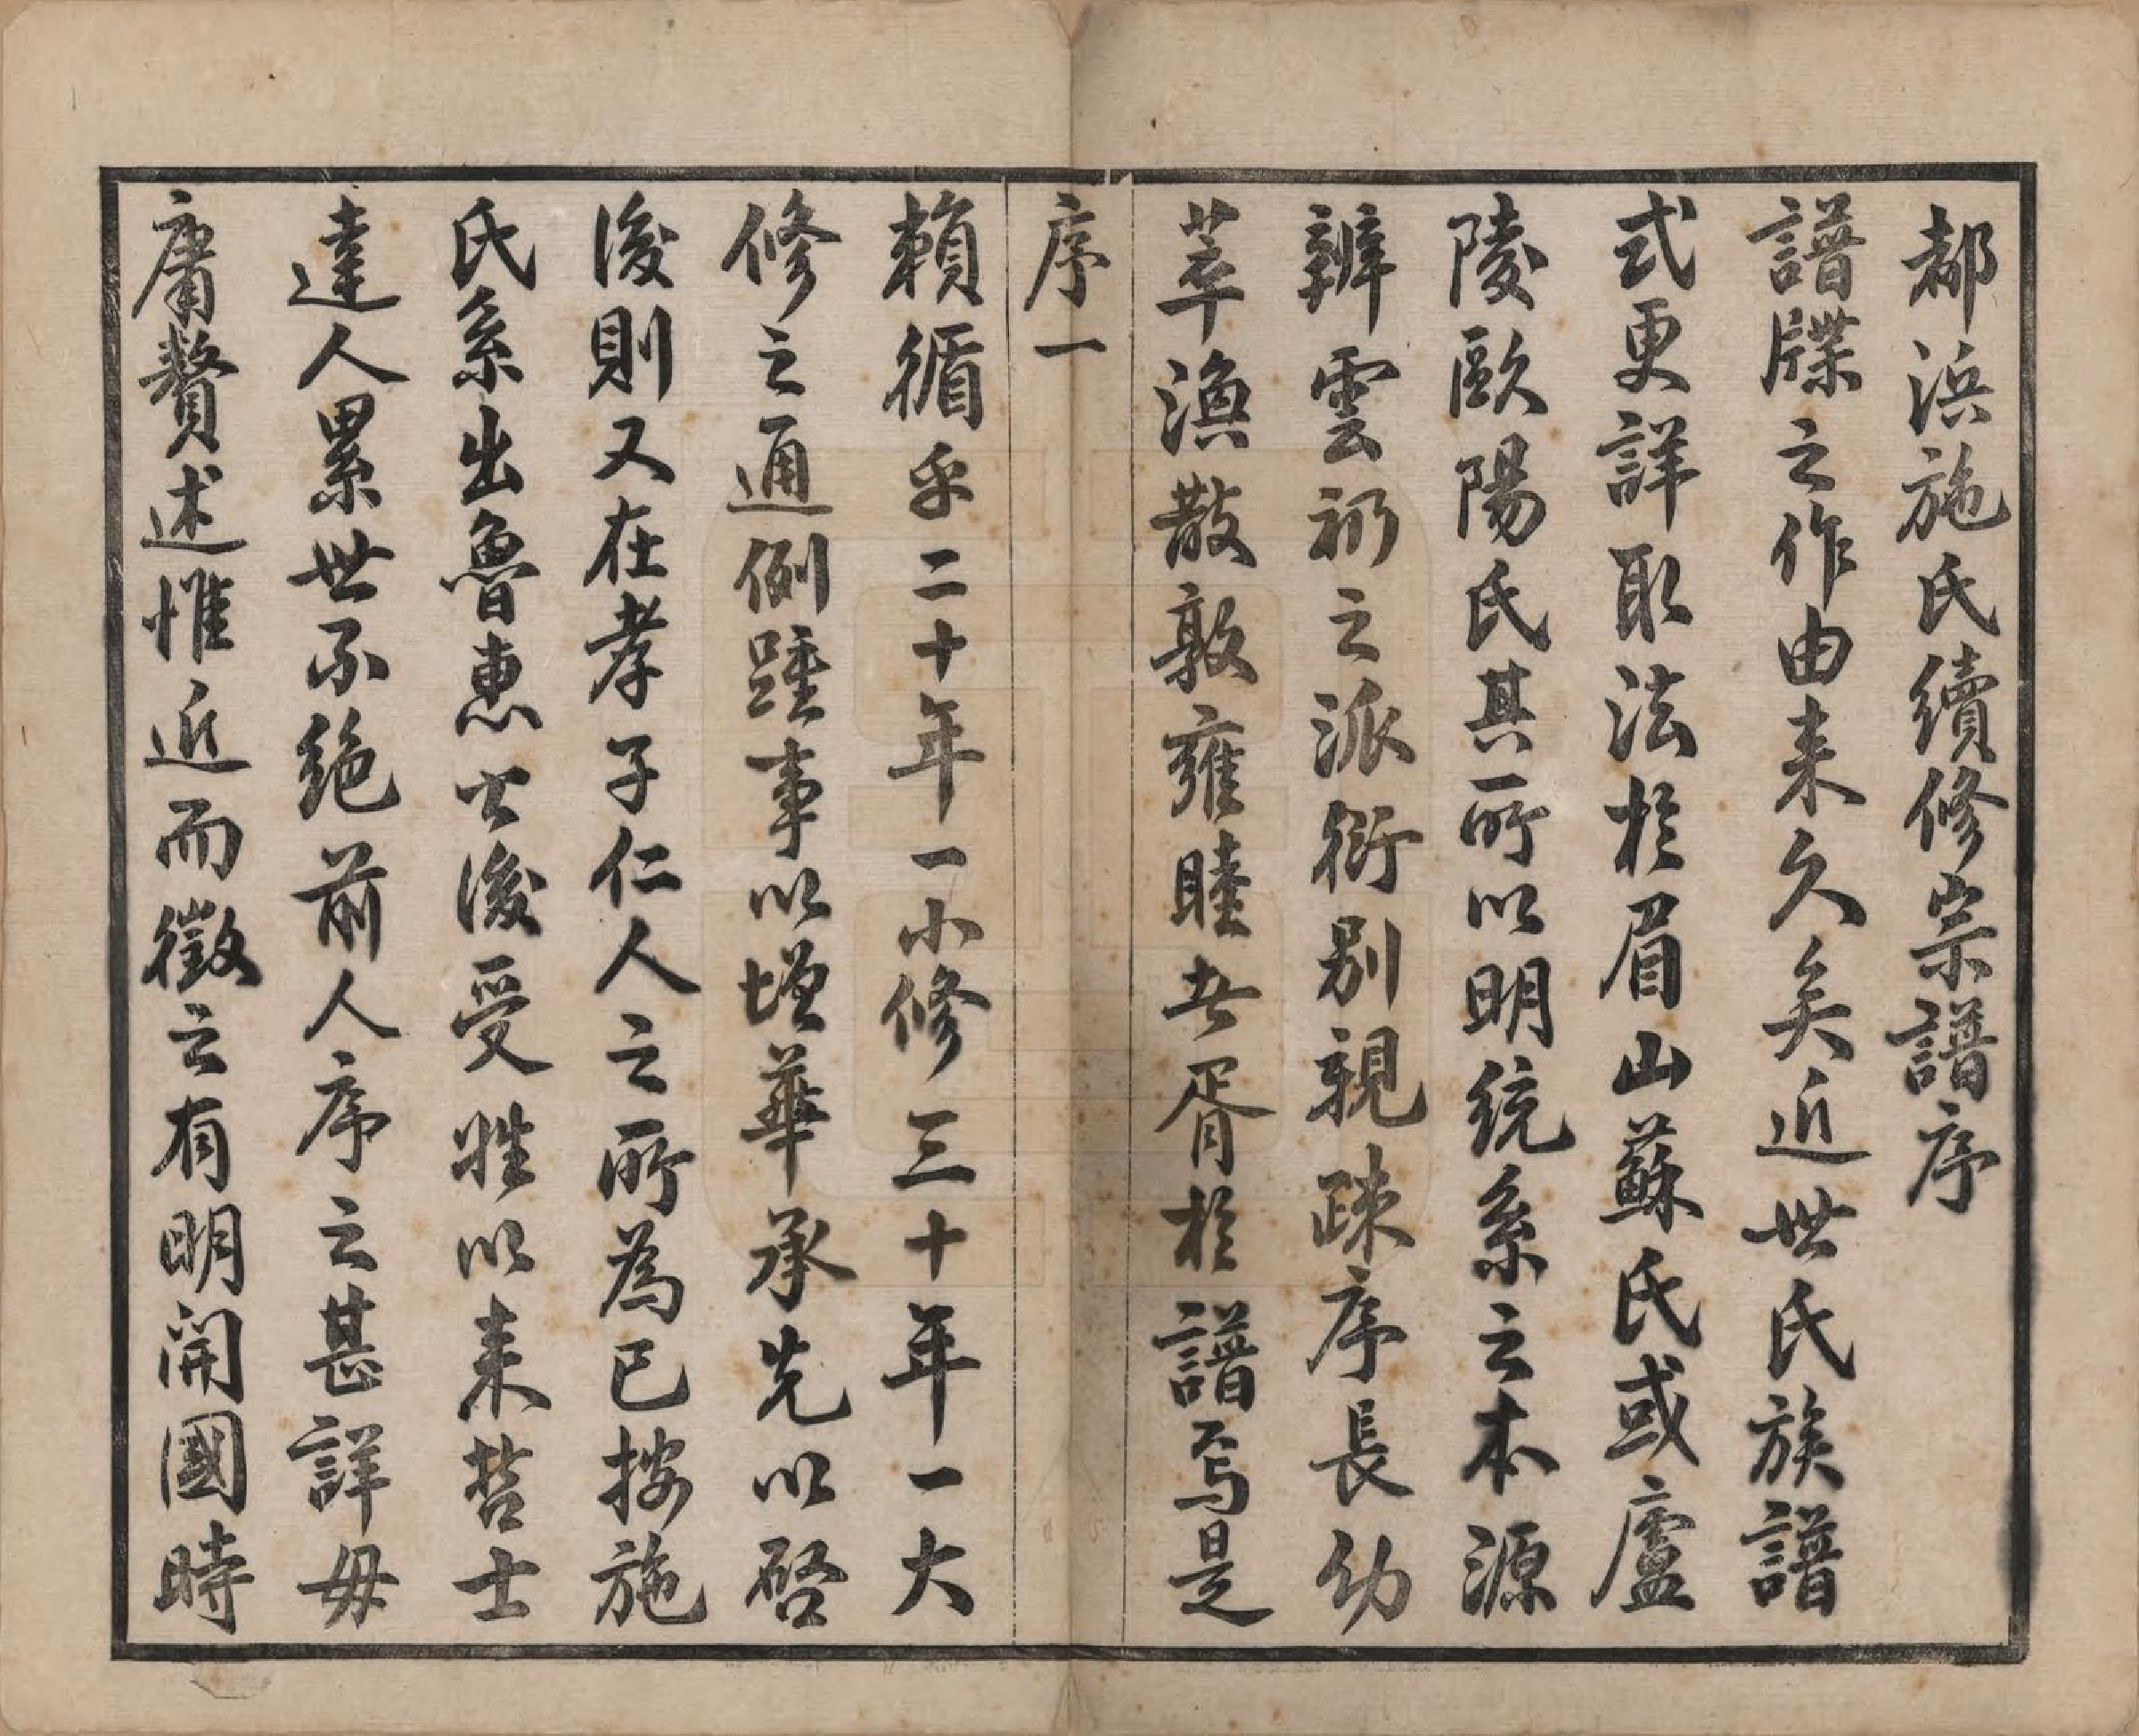 都浜施氏續修宗譜序
譜牒之作由来久矣近世氏族譜
式更詳取法於眉山蘇氏或廬
陵歐陽氏其所以明統系之本源
辨雲礽之派衍别親疎序長幼
萃渙散敦雍睦者胥於譜焉是
序一
賴循乎二十年一小修三十年一大
修之通例踵事以增華承先以啓
後則又在孝子仁人之所為已按施
氏系出魯惠公後受姓以来哲士
達人累世不絶前人序之甚詳毋
庸贅述惟近而徵之有明開國時